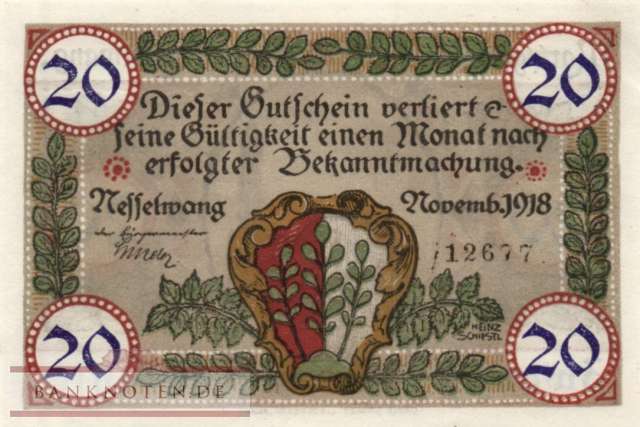 20 20
Dieser Gutschein verliert
seine Gültigkeit einen Monat nach
erfolgter Bekanntmachung.
Nesselwang Novemb. 1918
der Bürgermeister
12677
HEINZ
SCHIESTL
20 20
BANKNOTEN.DE